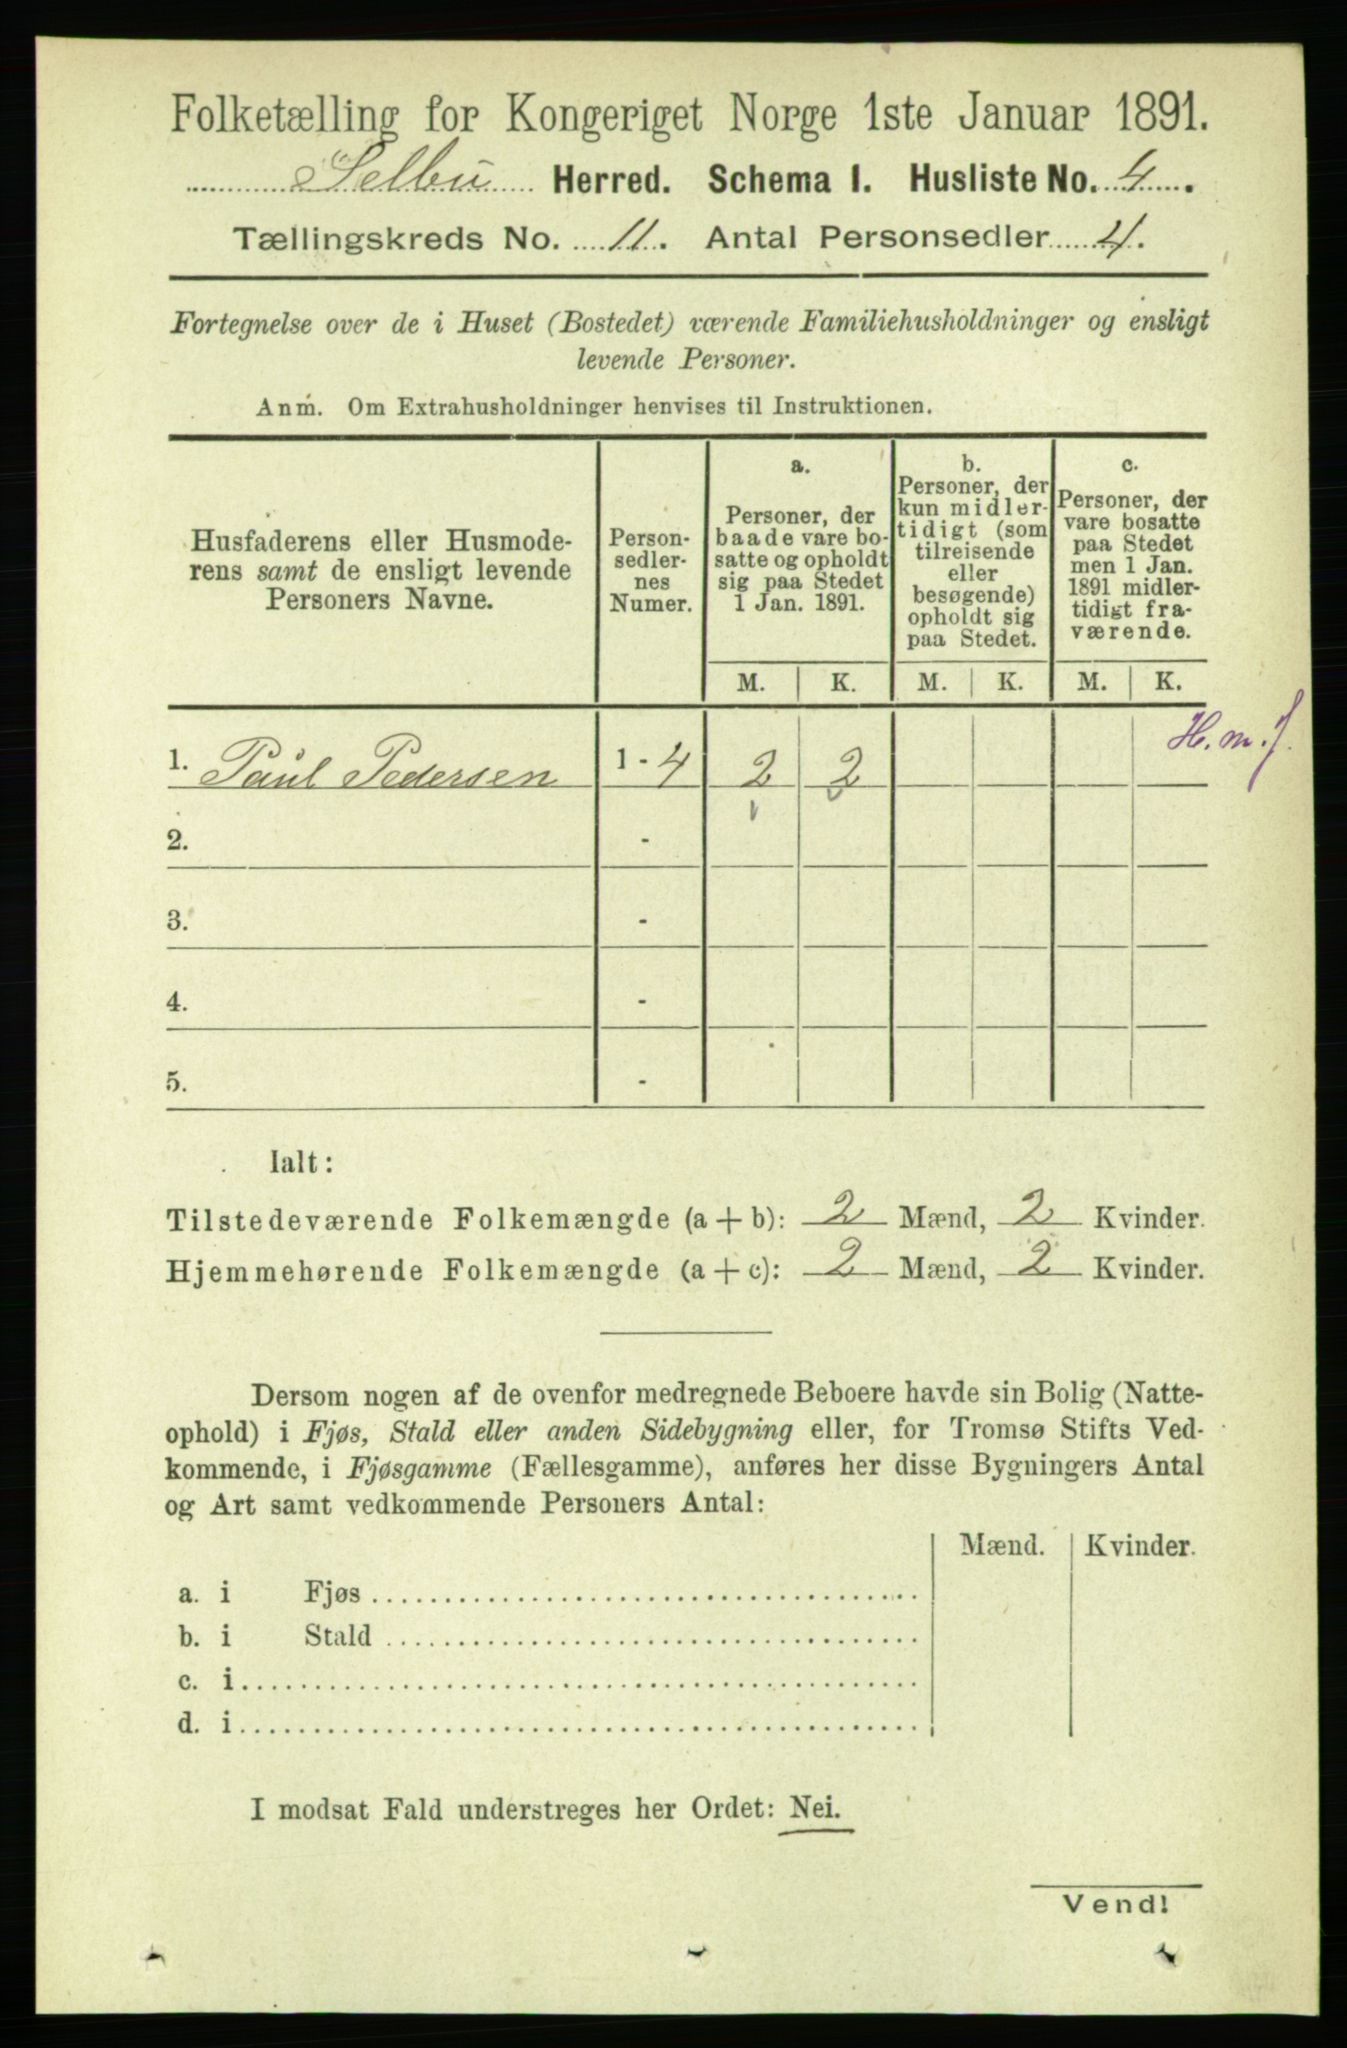 Folketælling for Kongeriget Norge 1ste Januar 1891.
Selbu Herred. Schema I. Husliste No. 4.
Tællingskreds No. 11. Antal Personsedler 4.
Fortegnelse over de i Huset (Bostedet) værende Familiehusholdninger og ensligt
levende Personer.
Anm. Om Extrahusholdninger henvises til Instruktionen.
Husfaderens eller Husmode-
rens samt de ensligt levende
Personers Navne.
Person-
sedler-
nes
Numer.
a.
Personer, der
baade vare bo-
satte og opholdt
sig paa Stedet
1 Jan. 1891.
b.
Personer, der
kun midler-
tidigt (som
tilreisende
eller
besøgende)
opholdt sig
paa Stedet.
c.
Personer, der
vare bosatte
paa Stedet
men 1 Jan.
1891 midler-
tidigt fra-
værende.
M. K. M. K. M. K.
H. m. f.
1. Paul Pedersen 1 - 4 2 2
2. -
3. -
4. -
5. -
Ialt:
Tilstedeværende Folkemængde (a + b): 2 Mænd, 2 Kvinder.
Hjemmehørende Folkemængde (a + c): 2 Mænd, 2 Kvinder.
Dersom nogen af de ovenfor medregnede Beboere havde sin Bolig (Natte-
ophold) i Fjøs, Stald eller anden Sidebygning eller, for Tromsø Stifts Ved-
kommende, i Fjøsgamme (Fællesgamme), anføres her disse Bygningers Antal
og Art samt vedkommende Personers Antal:
Mænd. Kvinder.
a. i Fjøs
b. i Stald
c. i
d. i
I modsat Fald understreges her Ordet: Nei.
Vend!